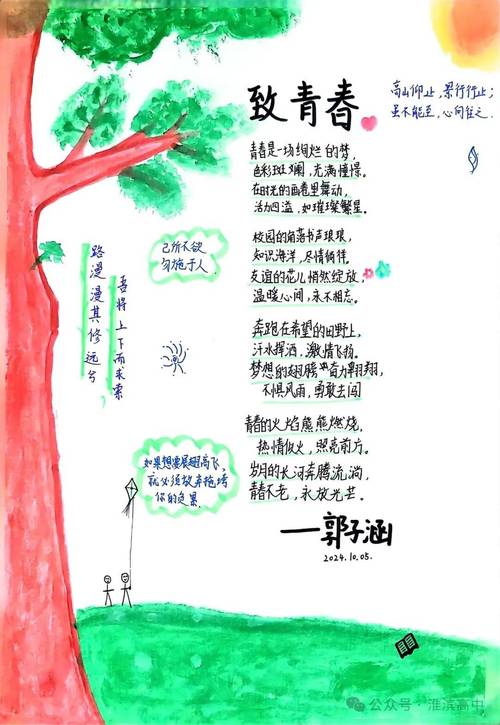 致青春
高山仰止，景行行止；
虽不能至，心向往之。
青春是一场绚烂的梦，
色彩斑斓，充满憧憬。
在时光的画卷里舞动，
活力四溢，如璀璨繁星。
校园的角落书声琅琅，
知识海洋，尽情徜徉。
友谊的花儿悄然绽放，
温暖心间，永不相忘。
奔跑在希望的田野上，
汗水挥洒，激情飞扬。
梦想的翅膀奋力翱翔，
不惧风雨，勇敢去闯
青春的火焰熊熊燃烧，
热情似火，照亮前方。
岁月的长河奔腾流淌，
青春不老，永放光芒。
——郭子涵
2024.10.05.
己所不欲
勿施于人
路漫漫其修远兮
吾将上下而求索
如果想要展翅高飞，
就必须放弃拖垮
你的
公众号·淮滨高中